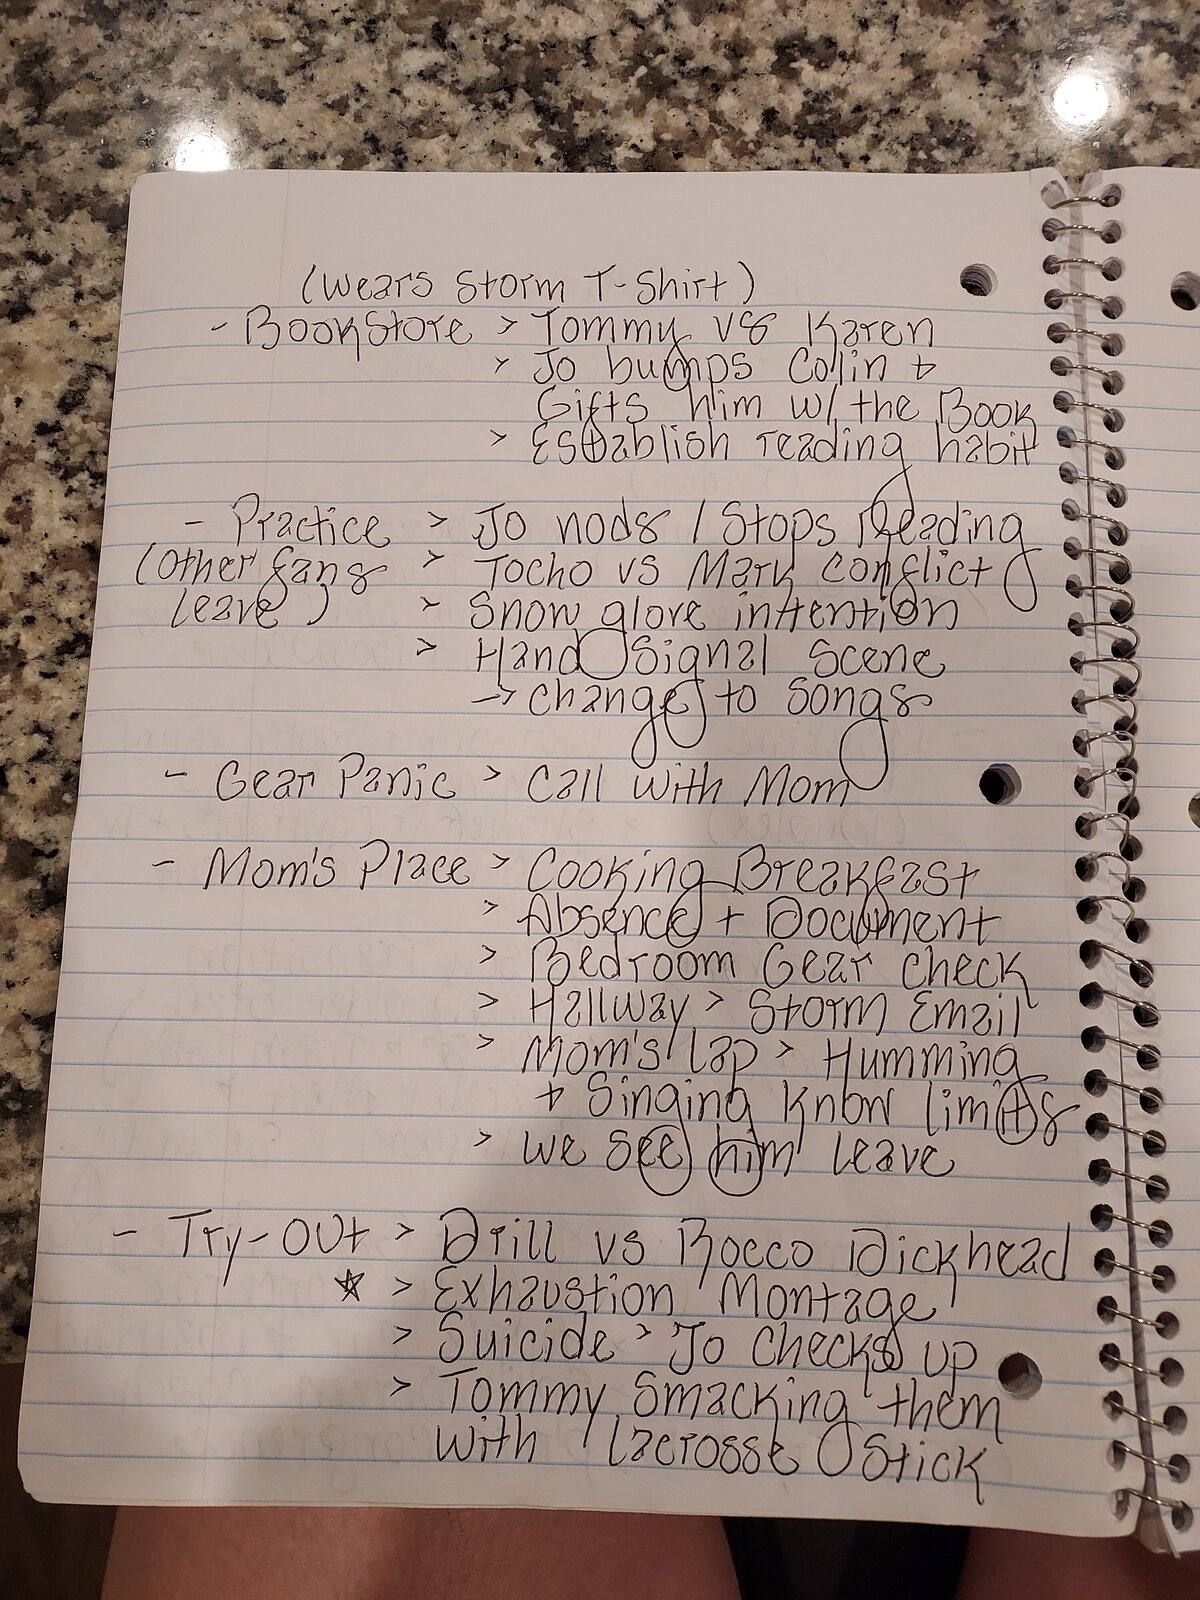 (Wears Storm T-Shirt)
- BookStore > Tommy vs Karen
> Jo bumps Colin +
Gifts him w/ the Book
> Establish reading habit
- Practice > Jo nods / Stops Reading
(Other fans > Tocho vs Mark Conflict
leave) > Snow glove inttention
> Hand Signal Scene
-> Change to Songs
- Gear Panic > Call with Mom
- Mom's Place > Cooking Breakfast
> Absence + Document
> Bedroom Gear Check
> Hallway > Storm Email
> Mom's Lap > Humming
+ Singing Know limits
> We see him leave
- Try-Out > Drill vs Rocco Dickhead
☆ > Exhaustion Montage
> Suicide > Jo Checks up
> Tommy Smacking them
With lacrosse Stick